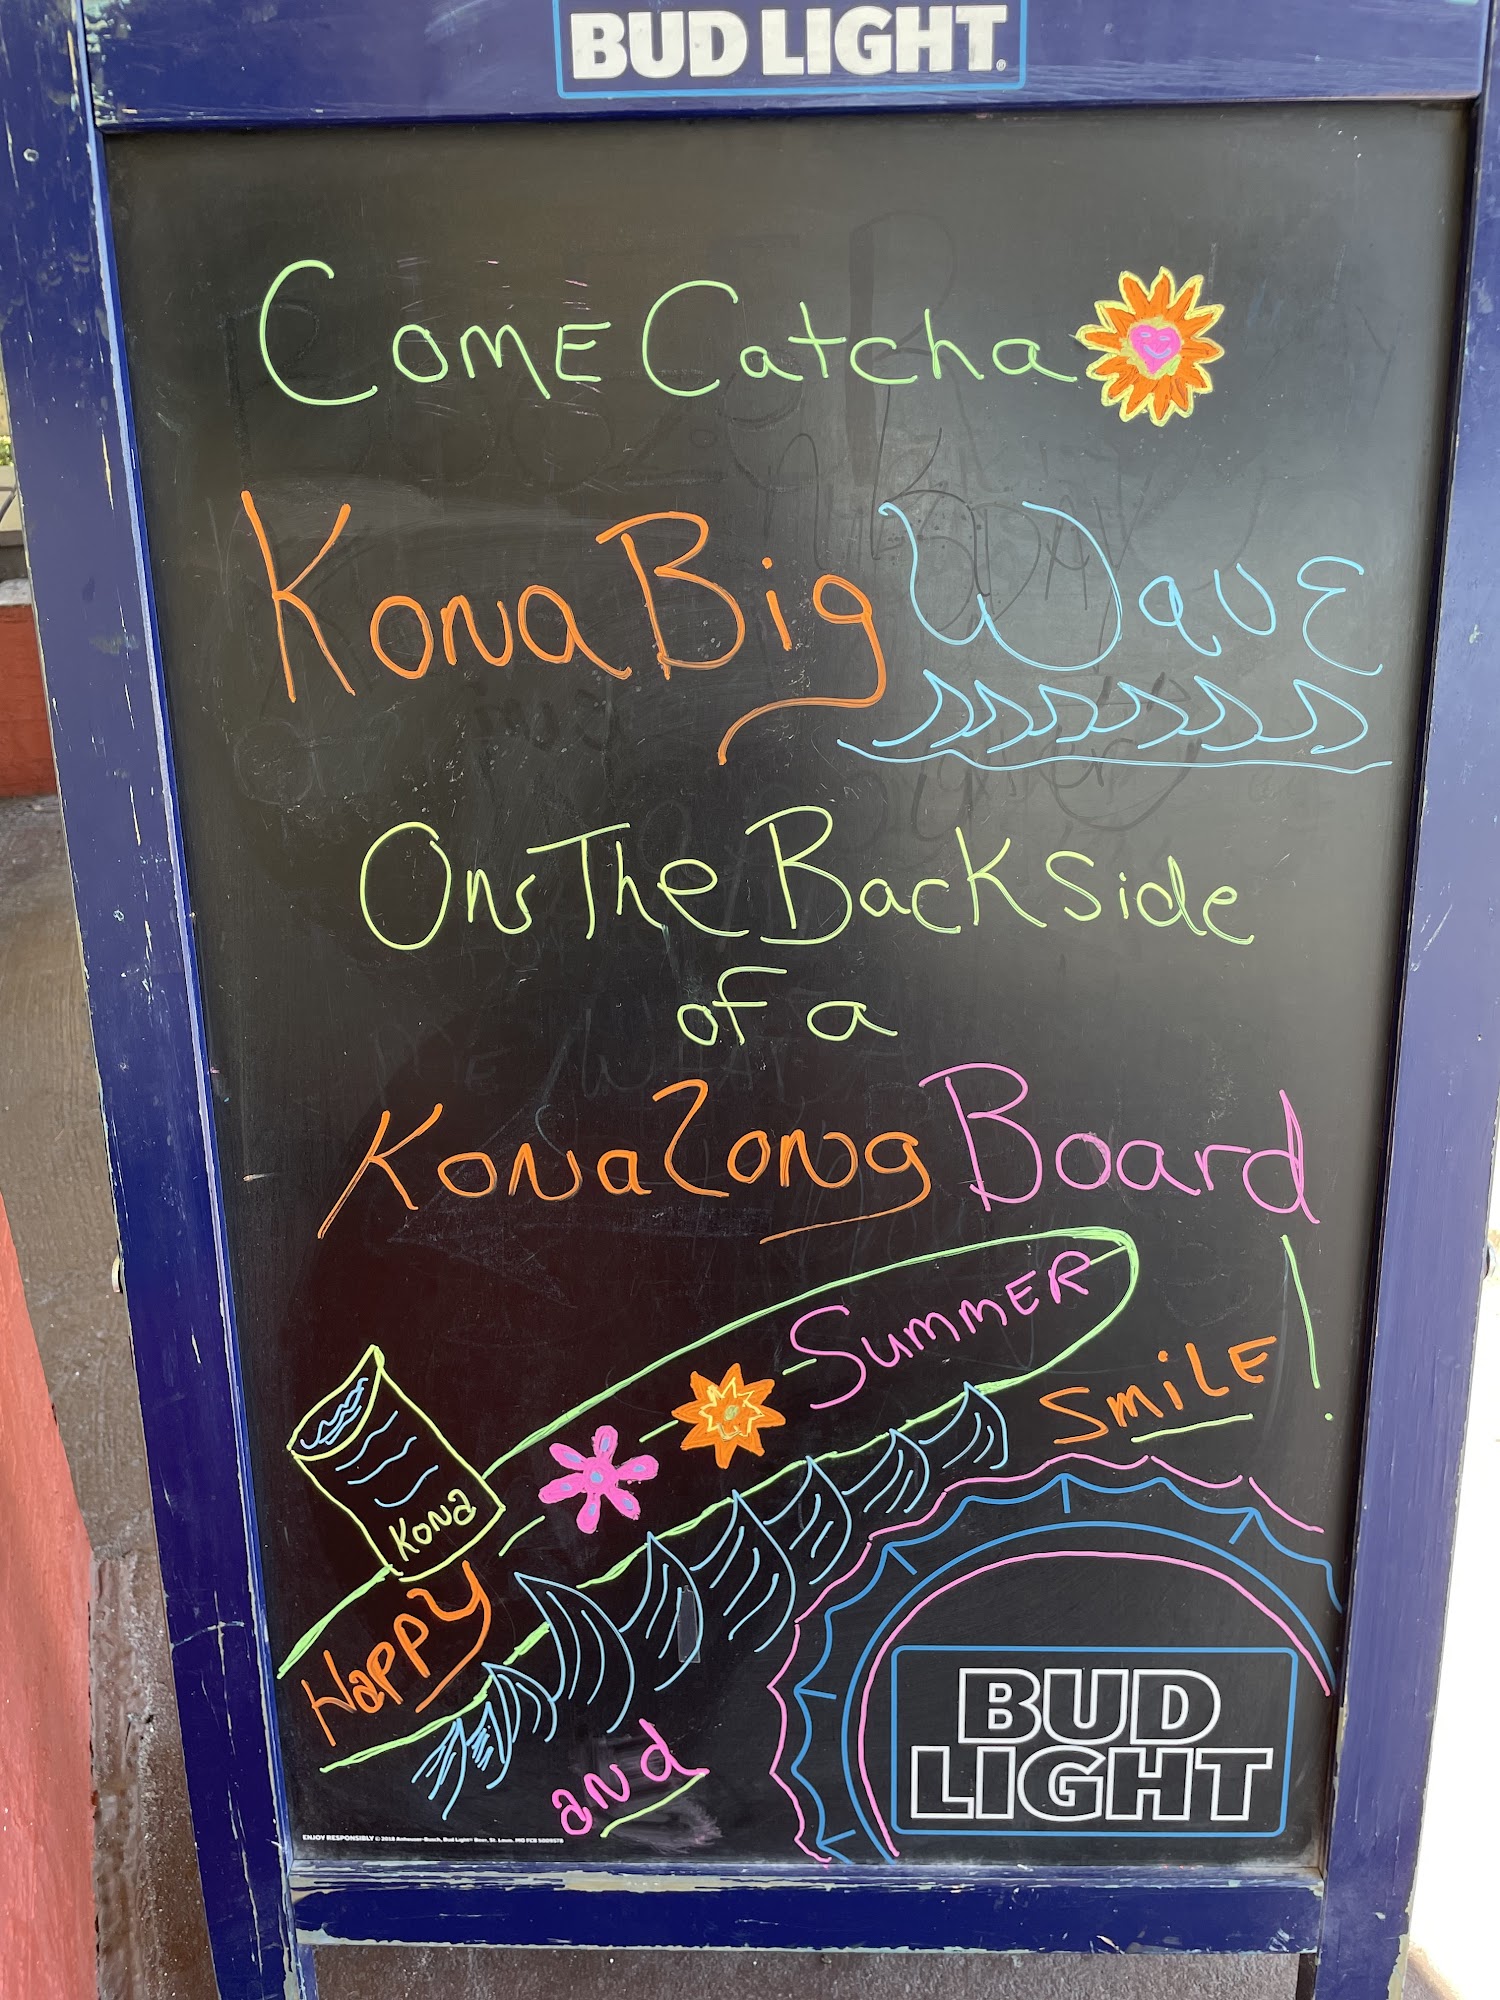 BUD LIGHT
Come Catcha
Kona Big Wave
Ons The Backside
of a
Kona Long Board!
Summer
SMiLE
Kona
Happy
and
BUD
LIGHT
ENJOY RESPONSIBLY © 2018 Anheuser-Busch, Bud Light® Beer, St. Louis, MO